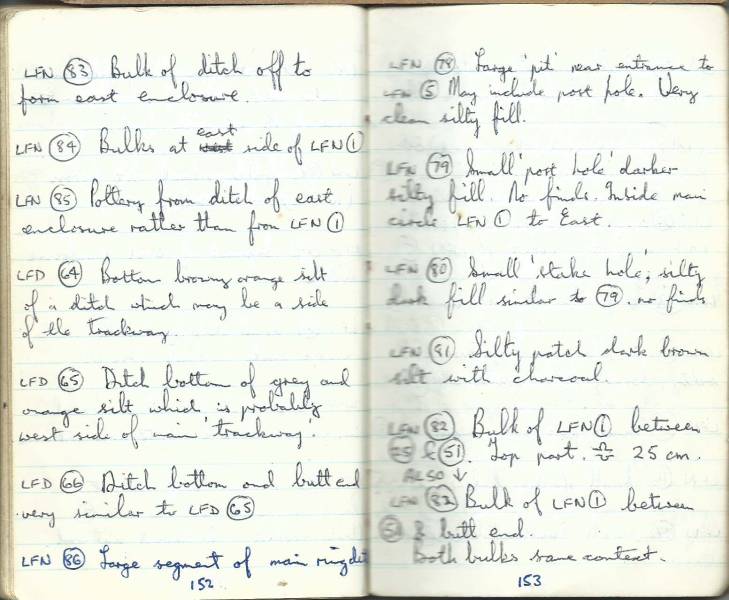 LFN (83) Bulk of ditch off to
form east enclosure.
LFN (84) Bulks at east side of LFN (1)
LFN (85) Pottery from ditch of east
enclosure rather than from LFN (1)
LFD (64) Bottom browny orange silt
of a ditch which may be a side
of the trackway.
LFD (65) Ditch bottom of grey and
orange silt which is probably
west side of main 'trackway'.
LFD (66) Ditch bottom and butt end
very similar to LFD (65)
LFN (86) Large segment of main ring dit
152
LFN (78) Large 'pit' near entrance to
LFN (5) May include post hole. Very
clean silty fill.
LFN (79) Small 'post hole' darker
silty fill. No finds. Inside main
circle LFN (1) to East.
LFN (80) Small 'stake hole', silty
dark fill similar to (79). no finds
LFN (81) Silty patch dark brown
silt with charcoal.
LFN (82) Bulk of LFN (1) between
& (51). Top part. 25 cm.
ALSO ↓
LFN (82) Bulk of LFN (1) between
& butt end.
Both bulks same context.
153